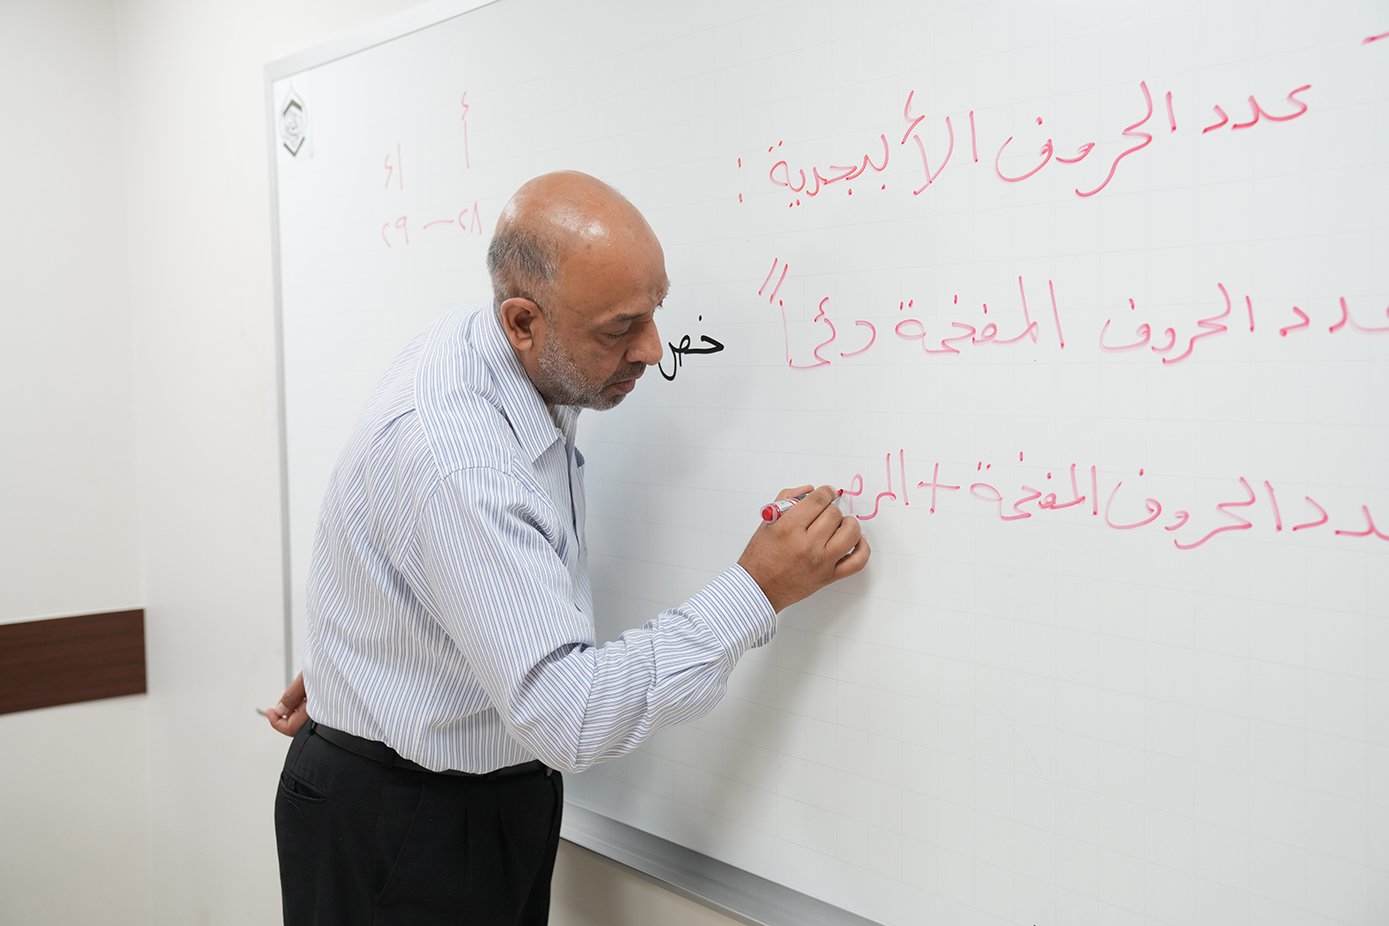 عدد الحروف الأبجدية :
عدد الحروف المفخمة دئماً
خص
عدد الحروف المفخمة + المر
أ
اء
٢٨ — ٢٩